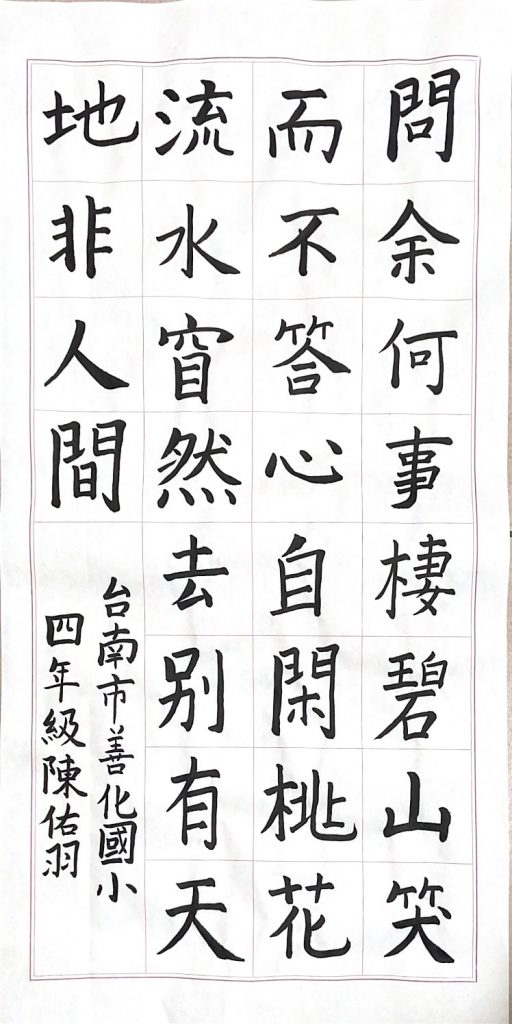 問余何事棲碧山笑
而不答心自閑桃花
流水窅然去別有天
地非人間
台南市善化國小
四年級陳佑羽